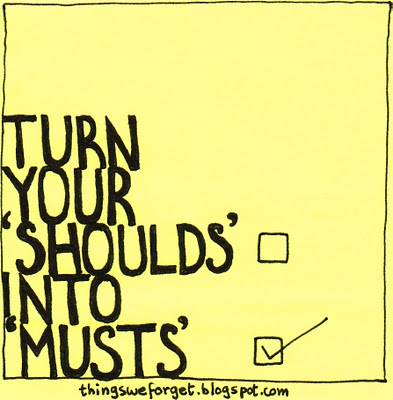 TURN
YOUR
'SHOULDS'
INTO
'MUSTS'
thingsweforget.blogspot.com